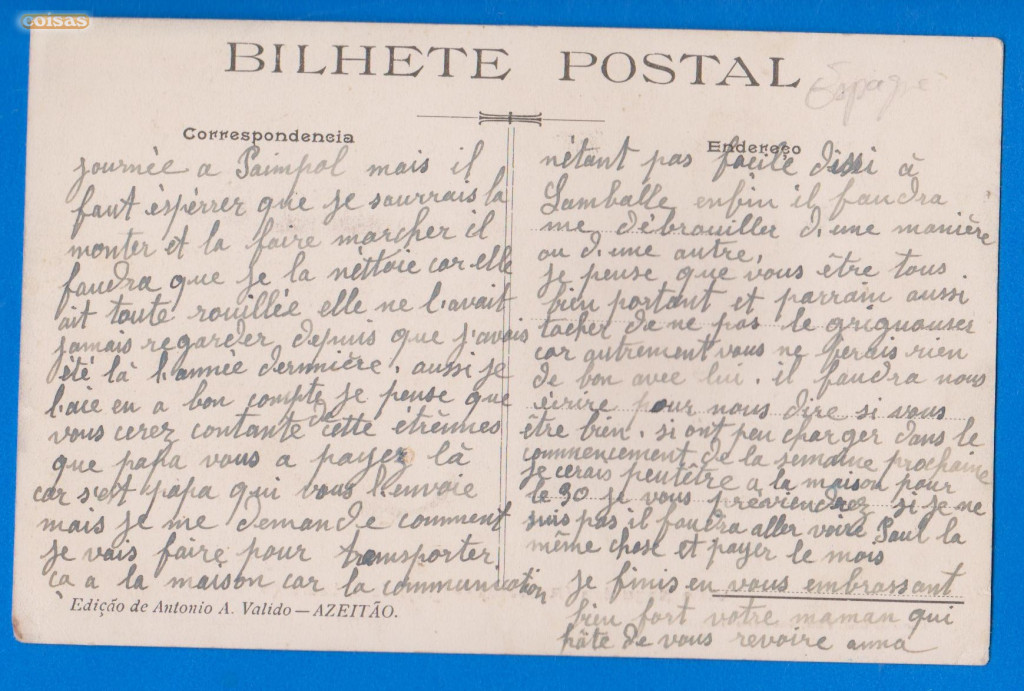 coisas
BILHETE POSTAL
Espagne
Correspondencia
journée a Paimpol mais il
faut éspérrer que je saurrais la
monter et la faire marcher il
faudra que je la néttoie car elle
ait toute rouillée elle ne l'avait
jamais regarder depuis que j'avais
été là l'année dernnière. aussi je
l'aie en a bon compte je pense que
vous cerez contante de cette étrénnes
que papa vous a payer là
car s'est papa qui vous l'envoie
mais je me demande comment
je vais faire pour transporter
ça a la maison car la communication
Edição de Antonio A. Valido — AZEITÃO.
Endereço
n'étant pas facile d'issi à
Lamballe enfin il faudra
me débrouiller d'une manière
ou d'une autre.
je pense que vous être tous
bien portant et parrain aussi
tacher de ne pas le grignouser
car autrement vous ne ferais rien
de bon avec lui. il faudra nous
écrire pour nous dire si vous
être bien. si ont peu charger dans le
commencement de la semaine prochaine
je cerais peutêtre a la maison pour
le 30 je vous préviendrez si je ne
suis pas il faudra aller voire Paul la
même chose et payer le mois
je finis en vous embrassant
bien fort votre maman qui
hâte de vous revoire anna